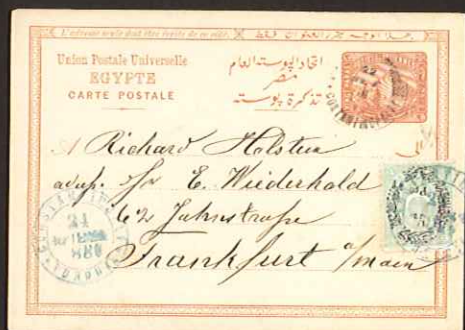 L'adresse seule doit être écrite de ce côté.
Union Postale Universelle
EGYPTE
CARTE POSTALE
اتحاد البوسته العام
مصر
تذكرة بوسته
A Richard Holstein
E. Wiederhold
62 Jahnstrasse
Frankfurt a/main
22
21